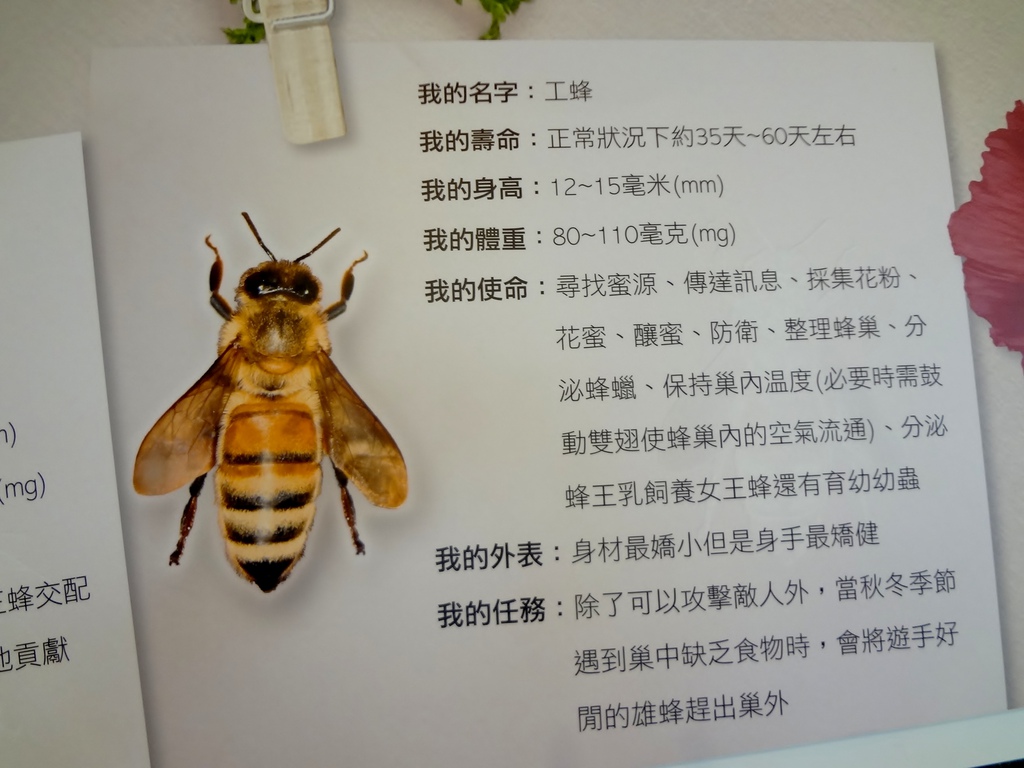 我的名字：工蜂
我的壽命：正常狀況下約35天~60天左右
我的身高：12~15毫米(mm)
我的體重：80~110毫克(mg)
我的使命：尋找蜜源、傳達訊息、採集花粉、
花蜜、釀蜜、防衛、整理蜂巢、分
泌蜂蠟、保持巢內溫度(必要時需鼓
動雙翅使蜂巢內的空氣流通)、分泌
蜂王乳飼養女王蜂還有育幼幼蟲
我的外表：身材最嬌小但是身手最矯健
我的任務：除了可以攻擊敵人外，當秋冬季節
遇到巢中缺乏食物時，會將遊手好
閒的雄蜂趕出巢外
(mg)
蜂交配
貢獻